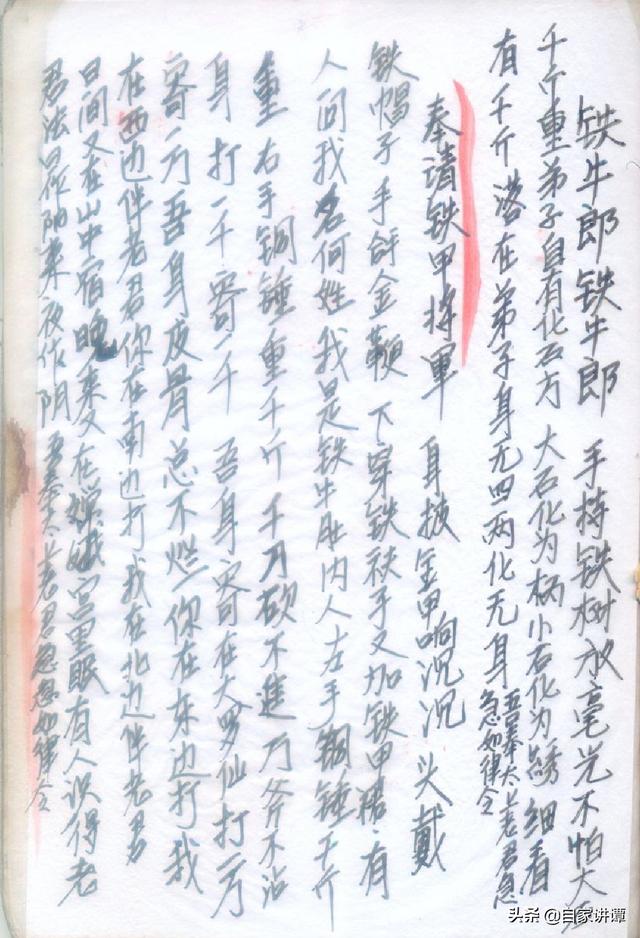 铁牛郎铁牛郎 手持铁树放毫光不怕大江
千斤重弟子自有化石方 大石化为柄小石化为绣细看
有千斤落在弟子身无四两化无身 吾奉太上老君急急如律令
奉请铁甲将军 身披金甲响沉沉 头戴
铁帽子手拿金鞭 下穿铁袄子又加铁甲裙 有
人问我名何姓我是铁牛肚内人左手铜锤千斤
重右手铜锤重千斤 千刀砍不进万斧不沾
身打一千寄一千 吾身寄在大罗仙打一万
寄一万吾身皮骨总不烂 你在东边打我
在西边伴老君你在南边打我在北边伴老君
日间又在山中宿晚来又在宫里眠有人识得老
君法日作阳来夜作阴 吾奉太上老君急急如律令
头条 @自家讲谭